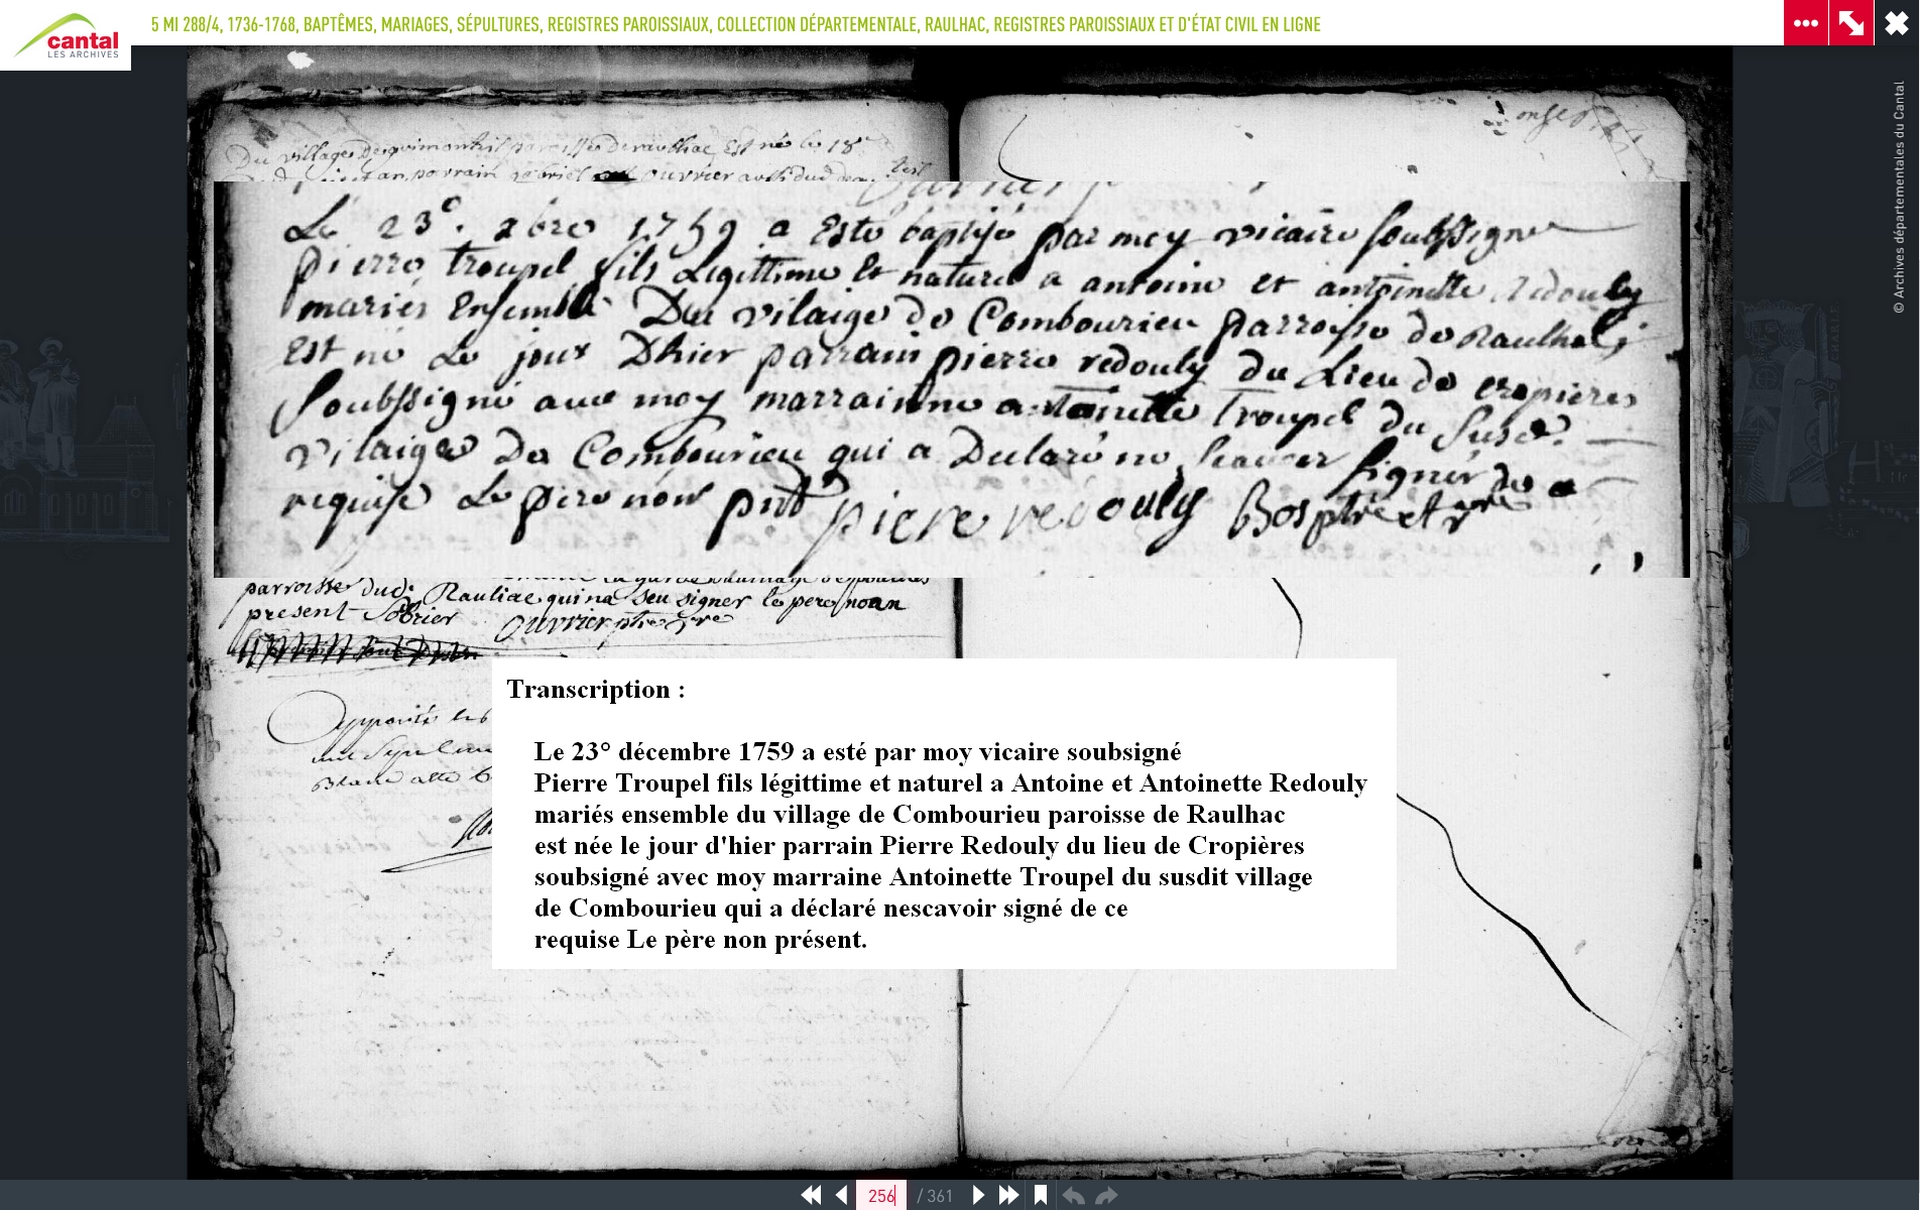 cantal
LES ARCHIVES
5 MI 288/4, 1736-1768, BAPTÊMES, MARIAGES, SÉPULTURES, REGISTRES PAROISSIAUX, COLLECTION DÉPARTEMENTALE, RAULHAC, REGISTRES PAROISSIAUX ET D'ÉTAT CIVIL EN LIGNE
© Archives départementales du Cantal
Du village paroisse de raulhac, Est né le 18e
parrain gabriel ouvrier
Le 23e. xbre 1759 a Esté baptisé par moy vicaire soubssigne
pierre troupel fils Legittime Et naturel a antoine et antoinette redouly
mariés Ensemble Du vilaige de Combourieu parroisse de Raulhac
Est né Le jour Dhier parrain pierre redouly du Lieu de cropieres
Soubssigné avec moy marrainne antoinette troupel du susd.
vilaige De Combourieu qui a Declaré ne scavoir signer de ce
requise Le pere non pnt pierre redouly Bos ptre et vre
parroisse dud. Rauliac quina seu signer le pere noan
present Sobrier Ouvrier ptre vre
Apporté les
Transcription :
Le 23° décembre 1759 a esté par moy vicaire soubsigné
Pierre Troupel fils légittime et naturel a Antoine et Antoinette Redouly
mariés ensemble du village de Combourieu paroisse de Raulhac
est née le jour d'hier parrain Pierre Redouly du lieu de Cropières
soubsigné avec moy marraine Antoinette Troupel du susdit village
de Combourieu qui a déclaré nescavoir signé de ce
requise Le père non présent.
256 / 361